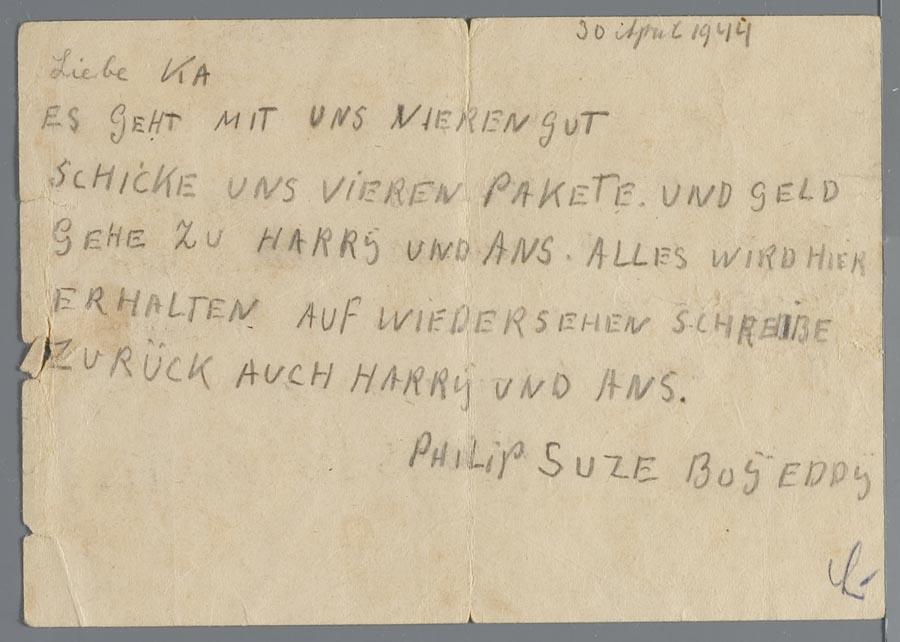 30 April 1944
Liebe KA
ES GEHT MIT UNS VIEREN GUT
SCHICKE UNS VIEREN PAKETE. UND GELD
GEHE ZU HARRÿ UND ANS. ALLES WIRD HIER
ERHALTEN. AUF WIEDERSEHEN SCHREIBE
ZURÜCK AUCH HARRY UND ANS.
PHILIP SUZE BOŸ EDDÿ